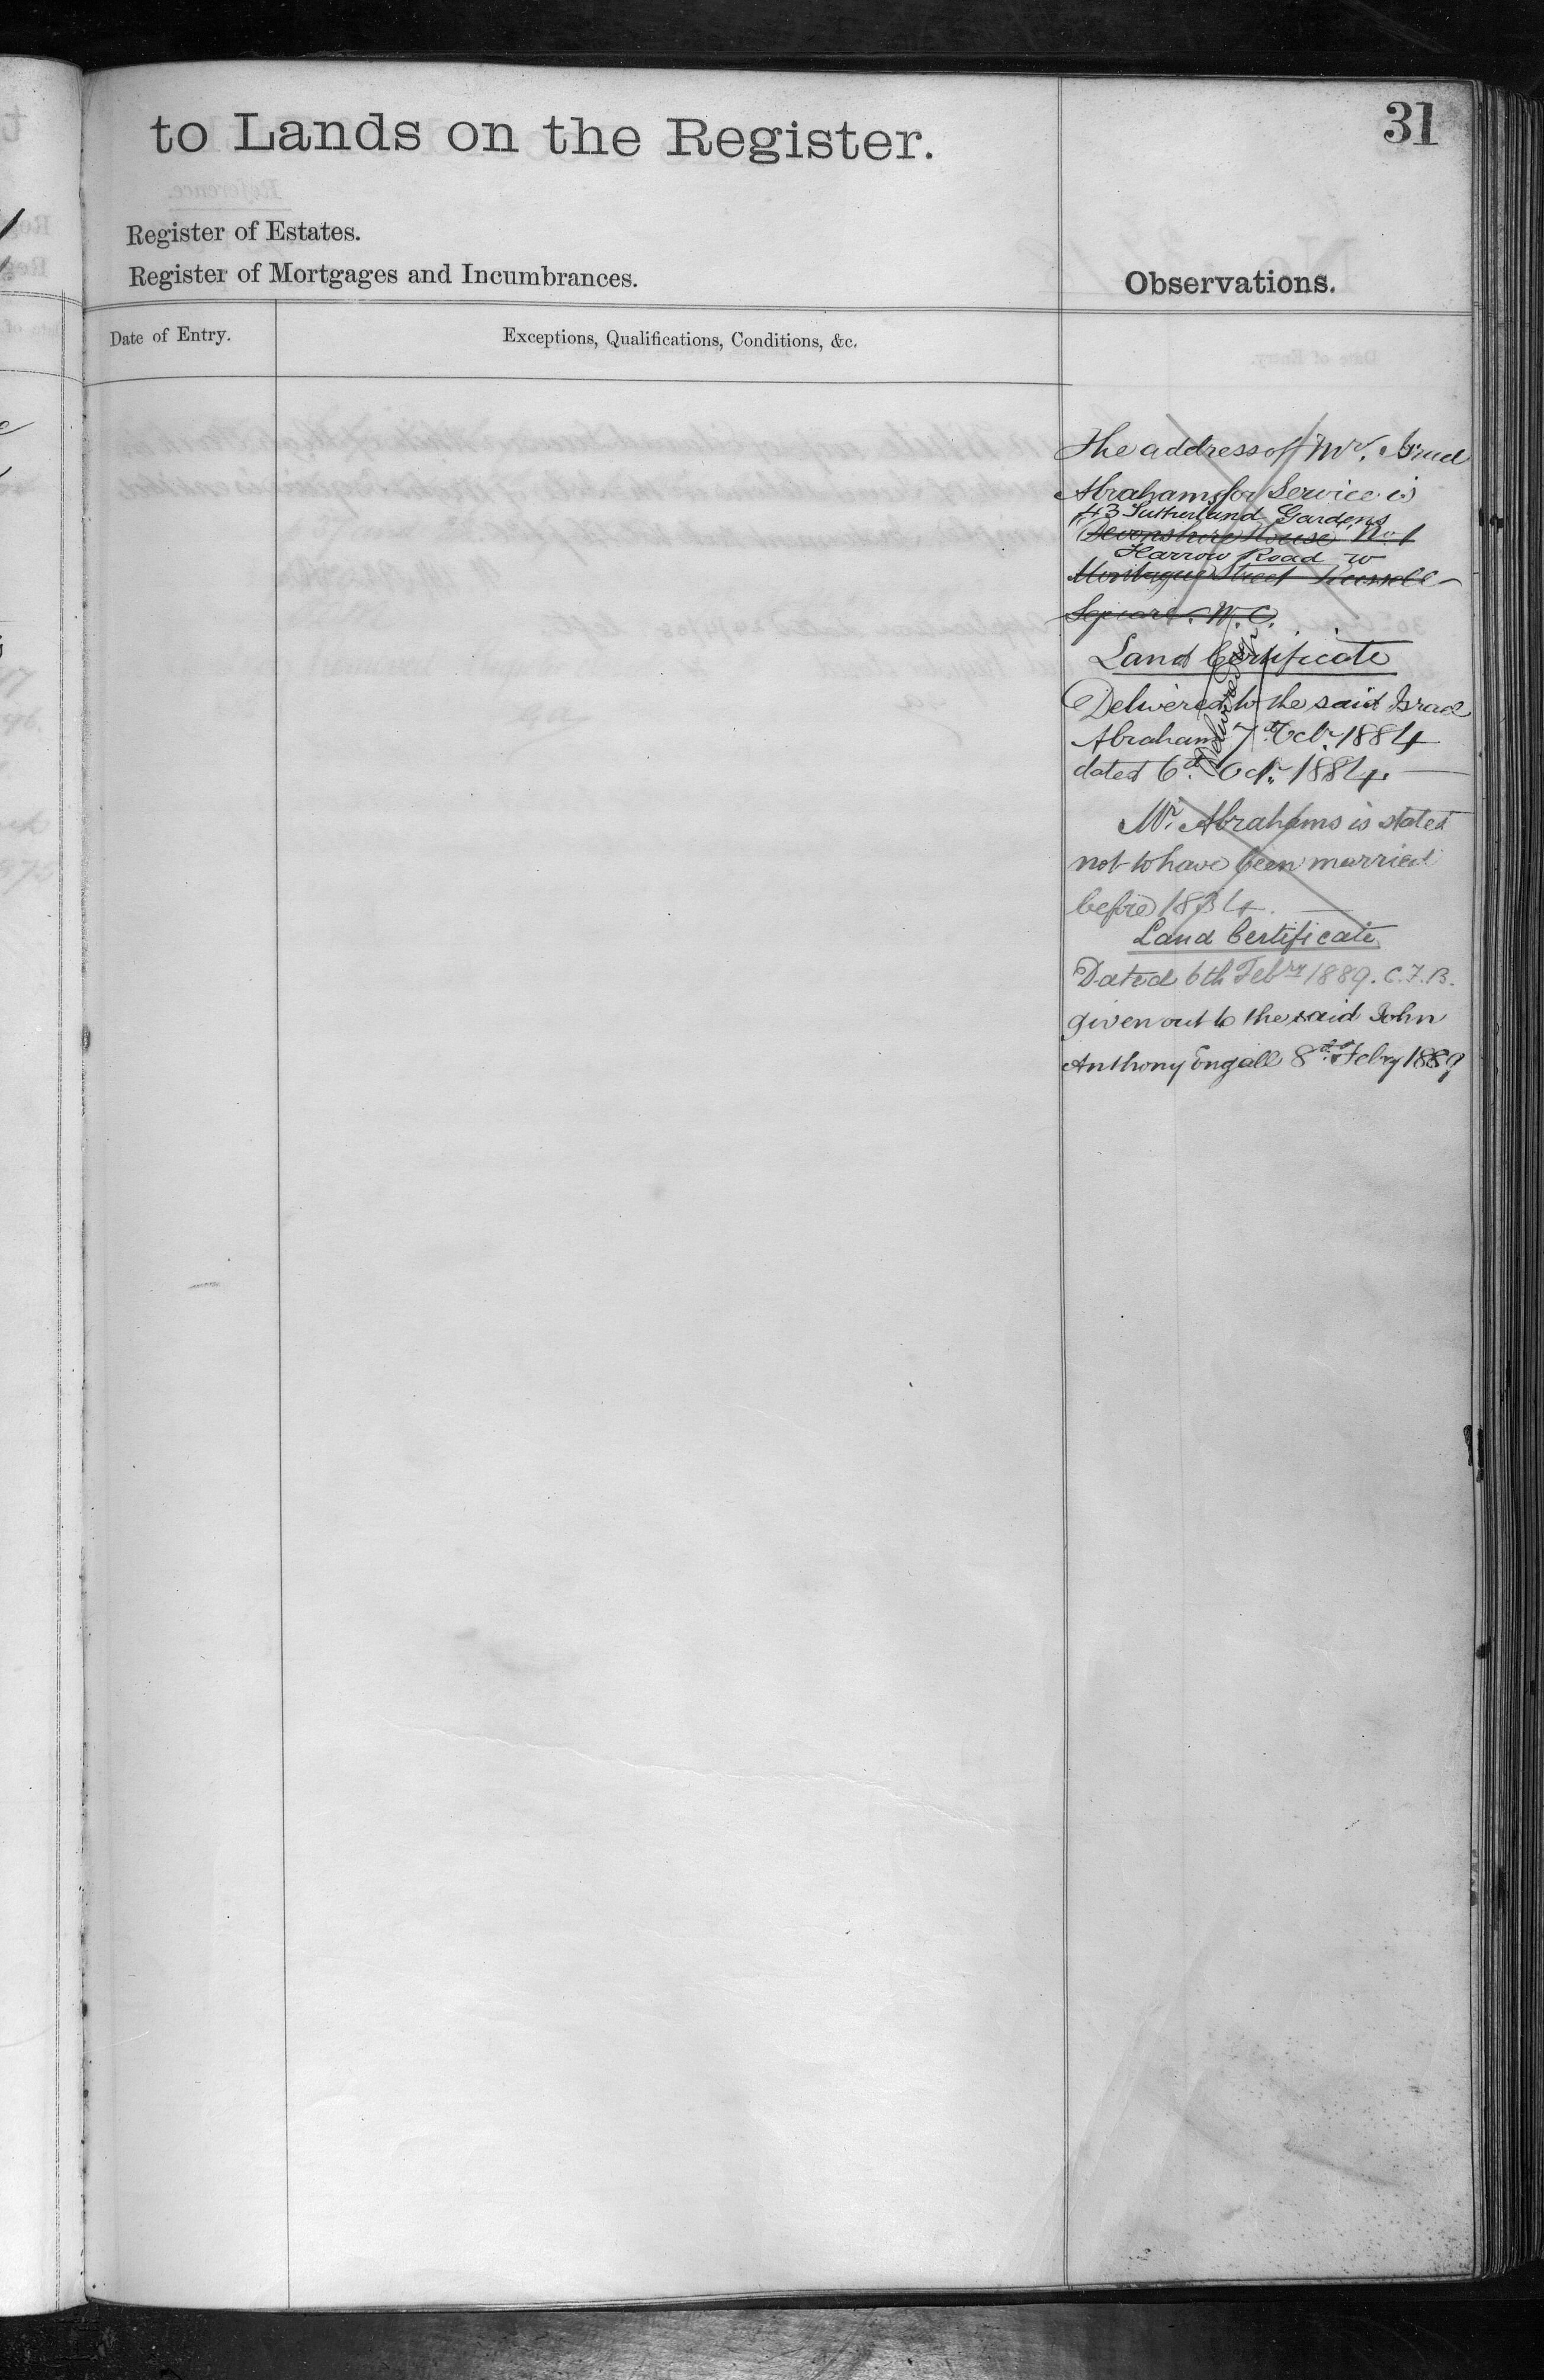 31
to Lands on the Register.
Register of Estates.
Register of Mortgages and Incumbrances.
Observations.
Date of Entry.
Exceptions, Qualifications, Conditions, &c.
The address of Mr. Israel
Abrahams for Service is
43 Sutherland Gardens
Devonshire House No 1
Harrow Road W
Montague Street Russell
Square. W.C.
Land Certificate
Delivered to the said Israel
Abrahams 7th Octr. 1884
dated 6th Octr. 1884.
Mr. Abrahams is stated
not to have been married
before 1834.
Land Certificate
Dated 6th Febry 1889. C.F.B.
given out to the said John
Anthony Engall 8th Febry 1889